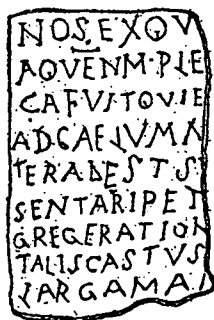 NOS.EXQV
AQVENM·PLE
CAFVI·TQVIE
ADCAELVMN
TERADESTS
SENTARIPET
GREGERATION
TALISCASTVS
LARGAMAI